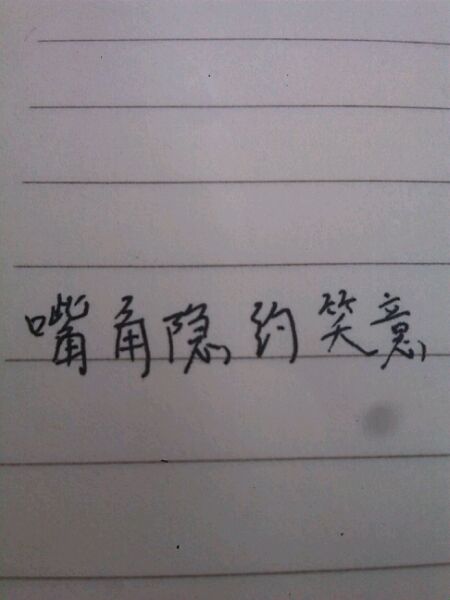 嘴角隐约笑意